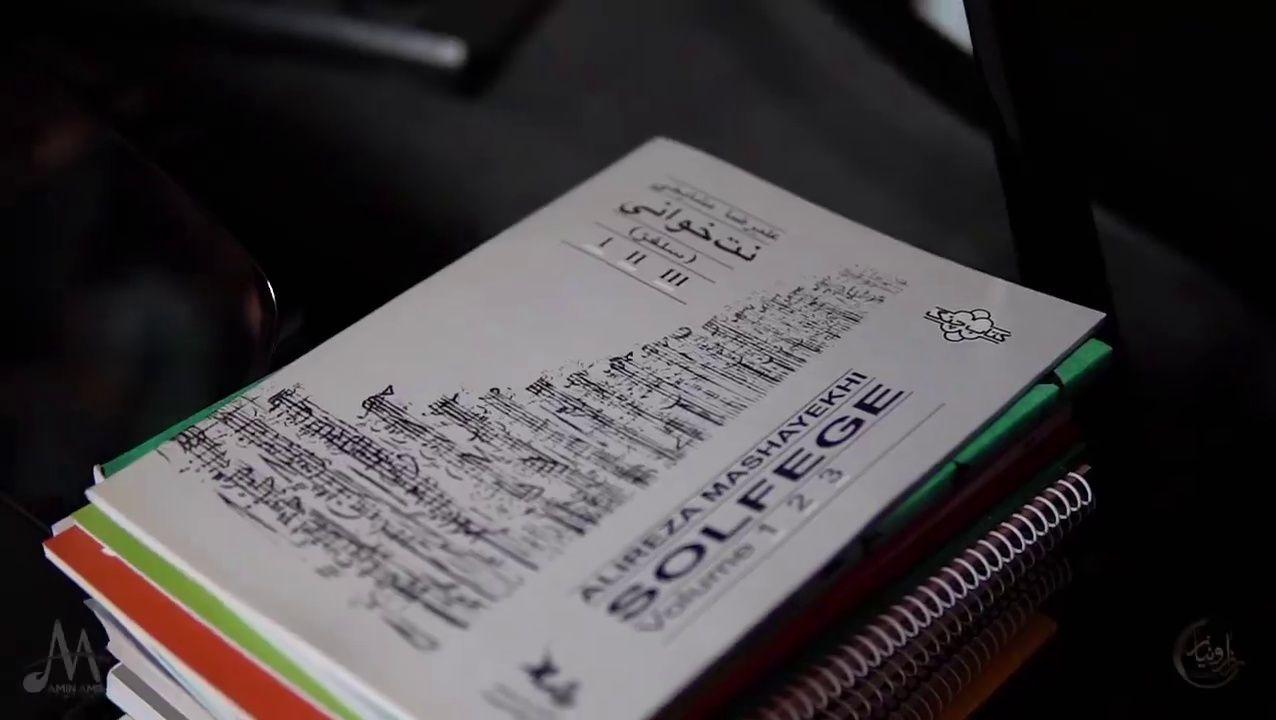 علیرضا مشایخی
نت‌خوانی
(سلفژ)
I II III
ALIREZA MASHAYEKHI
SOLFEGE
Volume 1 2 3
AMIN AMIR